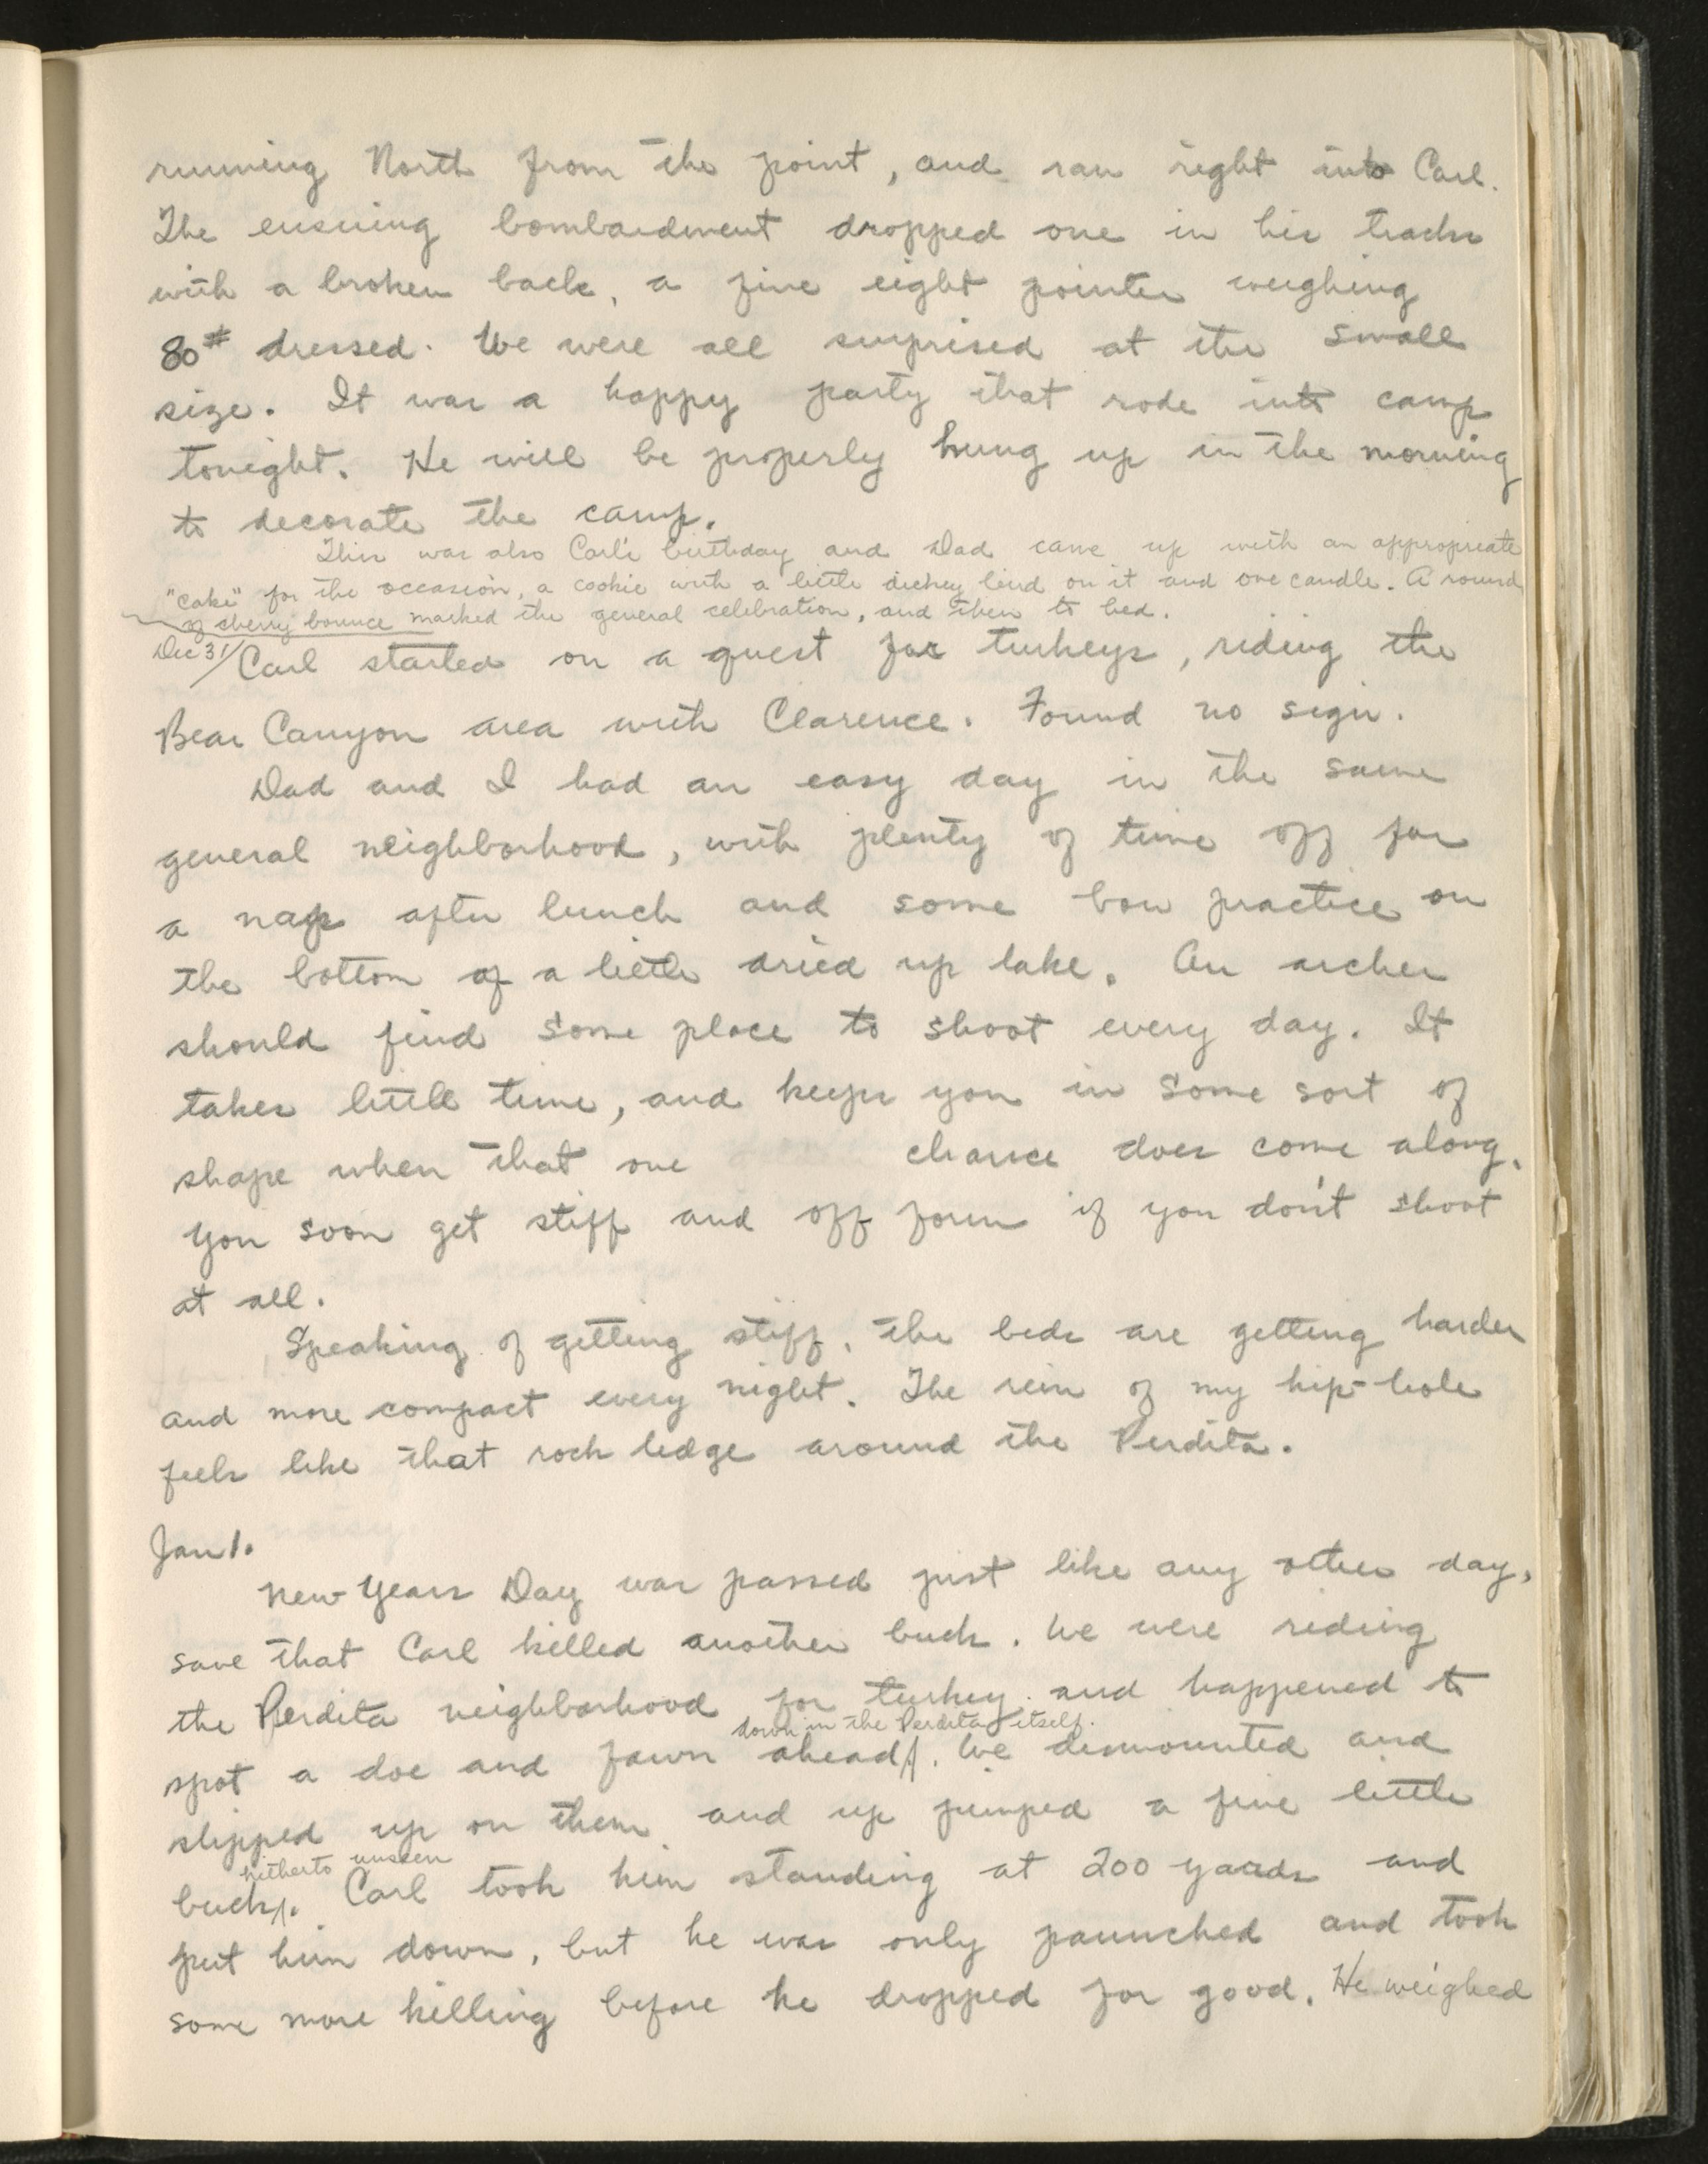 running North from the point, and ran right into Carl.
The ensuing bombardment dropped one in his tracks
with a broken back, a fine eight pointer weighing
80# dressed. We were all surprised at the small
size. It was a happy party that rode into camp
tonight. He will be properly hung up in the morning
to decorate the camp.
This was also Carl's birthday and Dad came up with an appropriate
"cake" for the occasion, a cookie with a little dickey bird on it and one candle. A round
of cherry bounce marked the general celebration, and then to bed.
Dec 31/ Carl started on a quest for turkeys, riding the
Bear Canyon area with Clarence. Found no sign.
Dad and I had an easy day in the same
general neighborhood, with plenty of time off for
a nap after lunch and some bow practice on
the bottom of a little dried up lake. An archer
should find some place to shoot every day. It
takes little time, and keeps you in some sort of
shape when that one chance does come along.
You soon get stiff and off form if you don't shoot
at all.
Speaking of getting stiff, the beds are getting harder
and more compact every night. The rim of my hip-hole
feels like that rock ledge around the Perdita.
Jan 1.
New Years Day was passed just like any other day,
save that Carl killed another buck. We were riding
the Perdita neighborhood for turkey and happened to
down in the Perdita itself.
spot a doe and fawn ahead. We dismounted and
slipped up on them and up jumped a fine little
hitherto unseen
buck. Carl took him standing at 200 yards and
put him down, but he was only paunched and took
some more killing before he dropped for good. He weighed